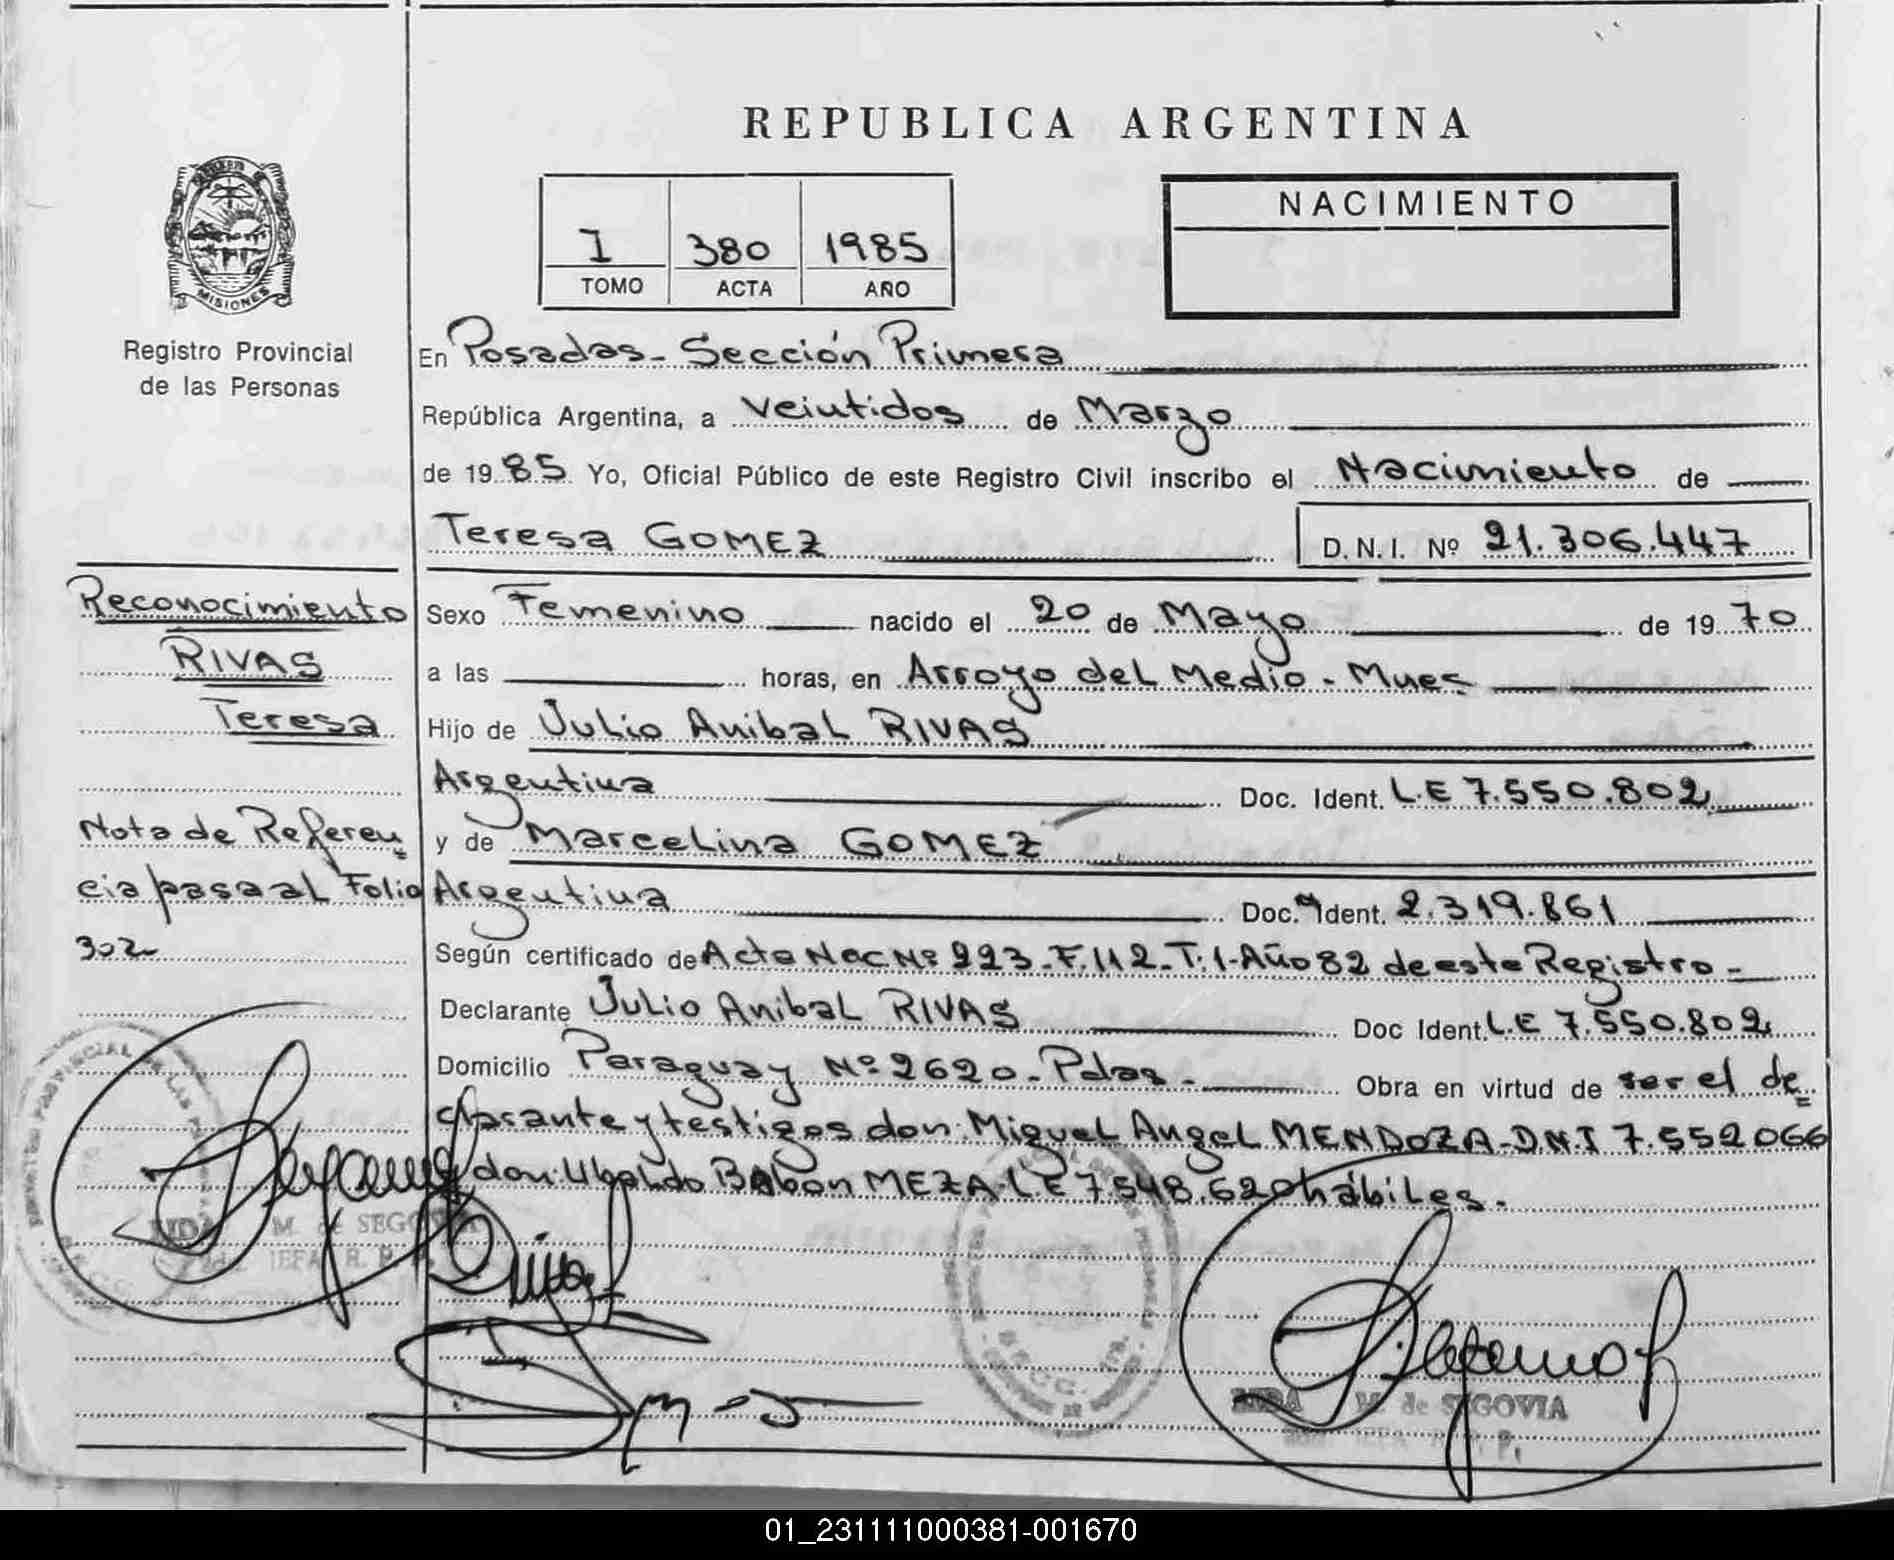 REPUBLICA ARGENTINA
MISIONES
Registro Provincial
de las Personas
I 380 1985
TOMO ACTA AÑO
NACIMIENTO
En Posadas - Sección Primera
República Argentina, a Veintidos de Marzo
de 1985 Yo, Oficial Público de este Registro Civil inscribo el Nacimiento de
Teresa GOMEZ D.N.I. Nº 21.306.447
Sexo Femenino nacido el 20 de Mayo de 1970
a las horas, en Arroyo del Medio - Mnes
Hijo de Julio Anibal RIVAS
Argentina Doc. Ident. L.E 7.550.802
y de Marcelina GOMEZ
Argentina Doc. Ident. 2.319.861
Según certificado de Acta Nac Nº 223 - F. 112 - T. 1 - Año 82 de este Registro -
Declarante Julio Anibal RIVAS Doc Ident. L.E 7.550.802
Domicilio Paraguay Nº 2620 - Pdas - Obra en virtud de ser el de=
clarante y testigos don: Miguel Angel MENDOZA - D.N.I 7.552066
y don: Ubaldo MEZA - L.E 7.548.620 hábiles -
Reconocimiento
RIVAS
Teresa
Nota de Referen=
cia pasa al Folio
302
M. de SEGOVIA
JEFA R. P.
M. de SEGOVIA
JEFA R. P. P.
01_231111000381-001670